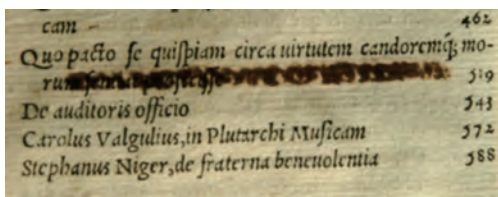 cam 462
Quo pacto se quispiam circa uirtutem candoremq́; mo-
rum 519
De auditoris officio 543
Carolus Valgulius, in Plutarchi Musicam 572
Stephanus Niger, de fraterna beneuolentia 588